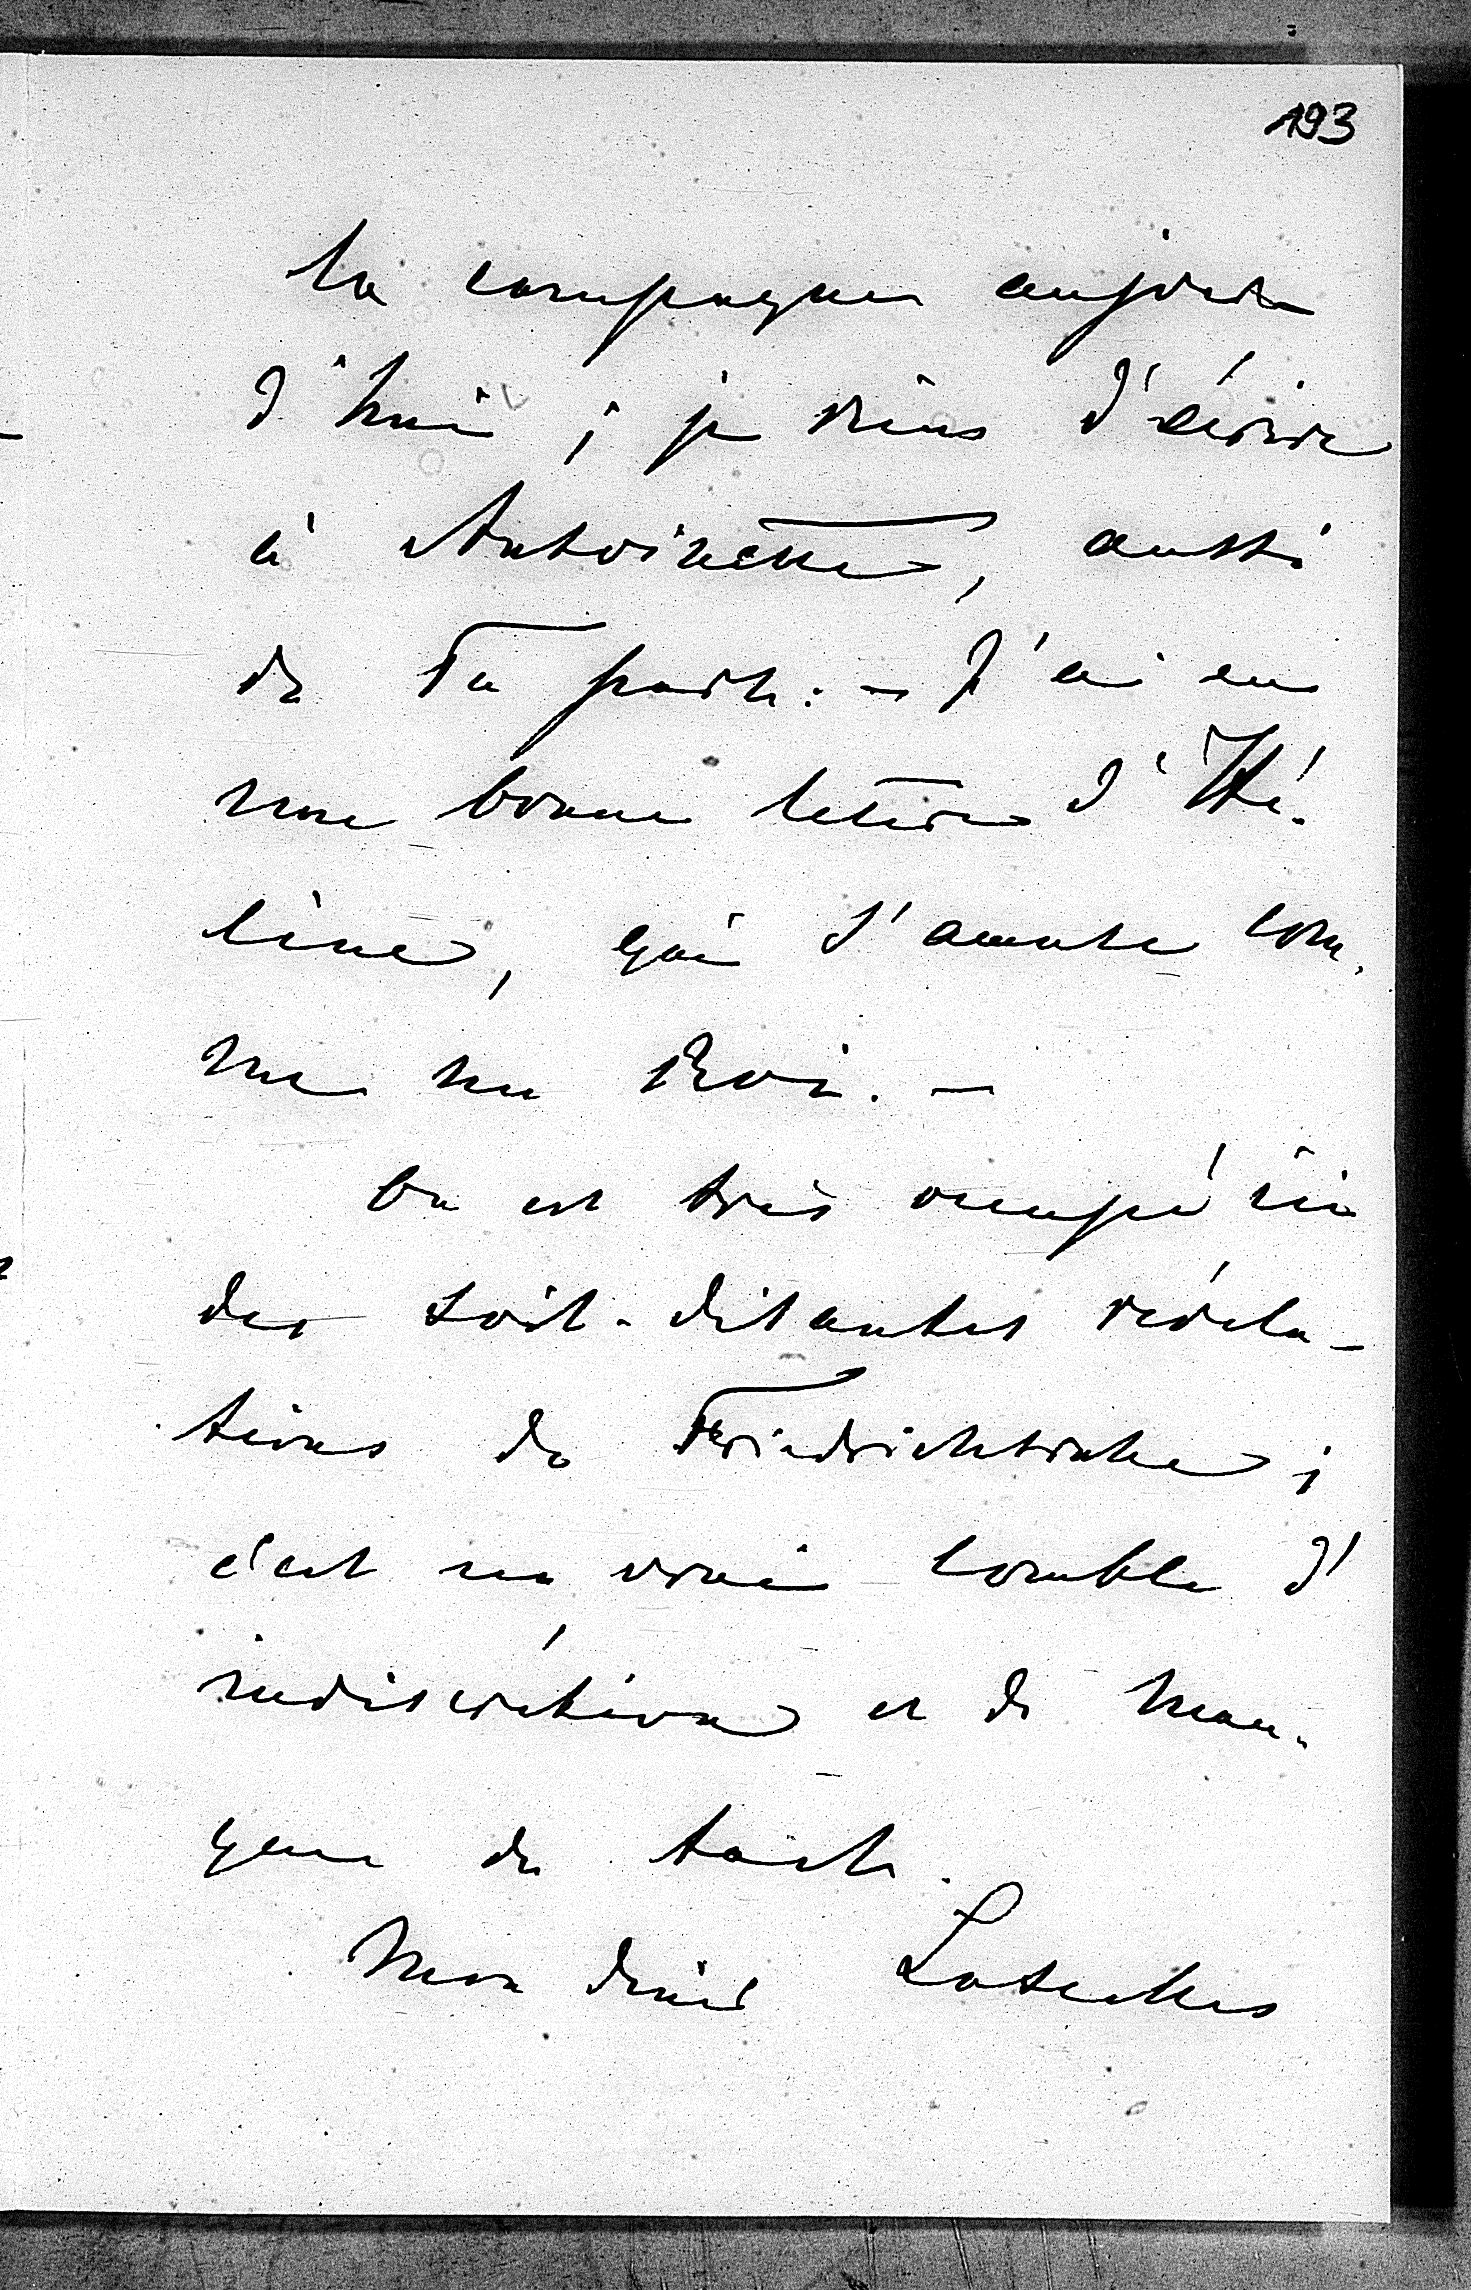 193
la campagne aujour
d'hui ; je viens d'écrire
à Antoinette, aussi
de Ta part. – J'ai eu
une bonne lettre d'Hé-
lène, qui s'amuse com-
me un Roi. –
On est très occupé ici
des soit-disantes révéla-
tions de Friedrichsruhe ;
c'est un vrai comble d'
indiscrétion et de man-
que de tact.
Mon dîné